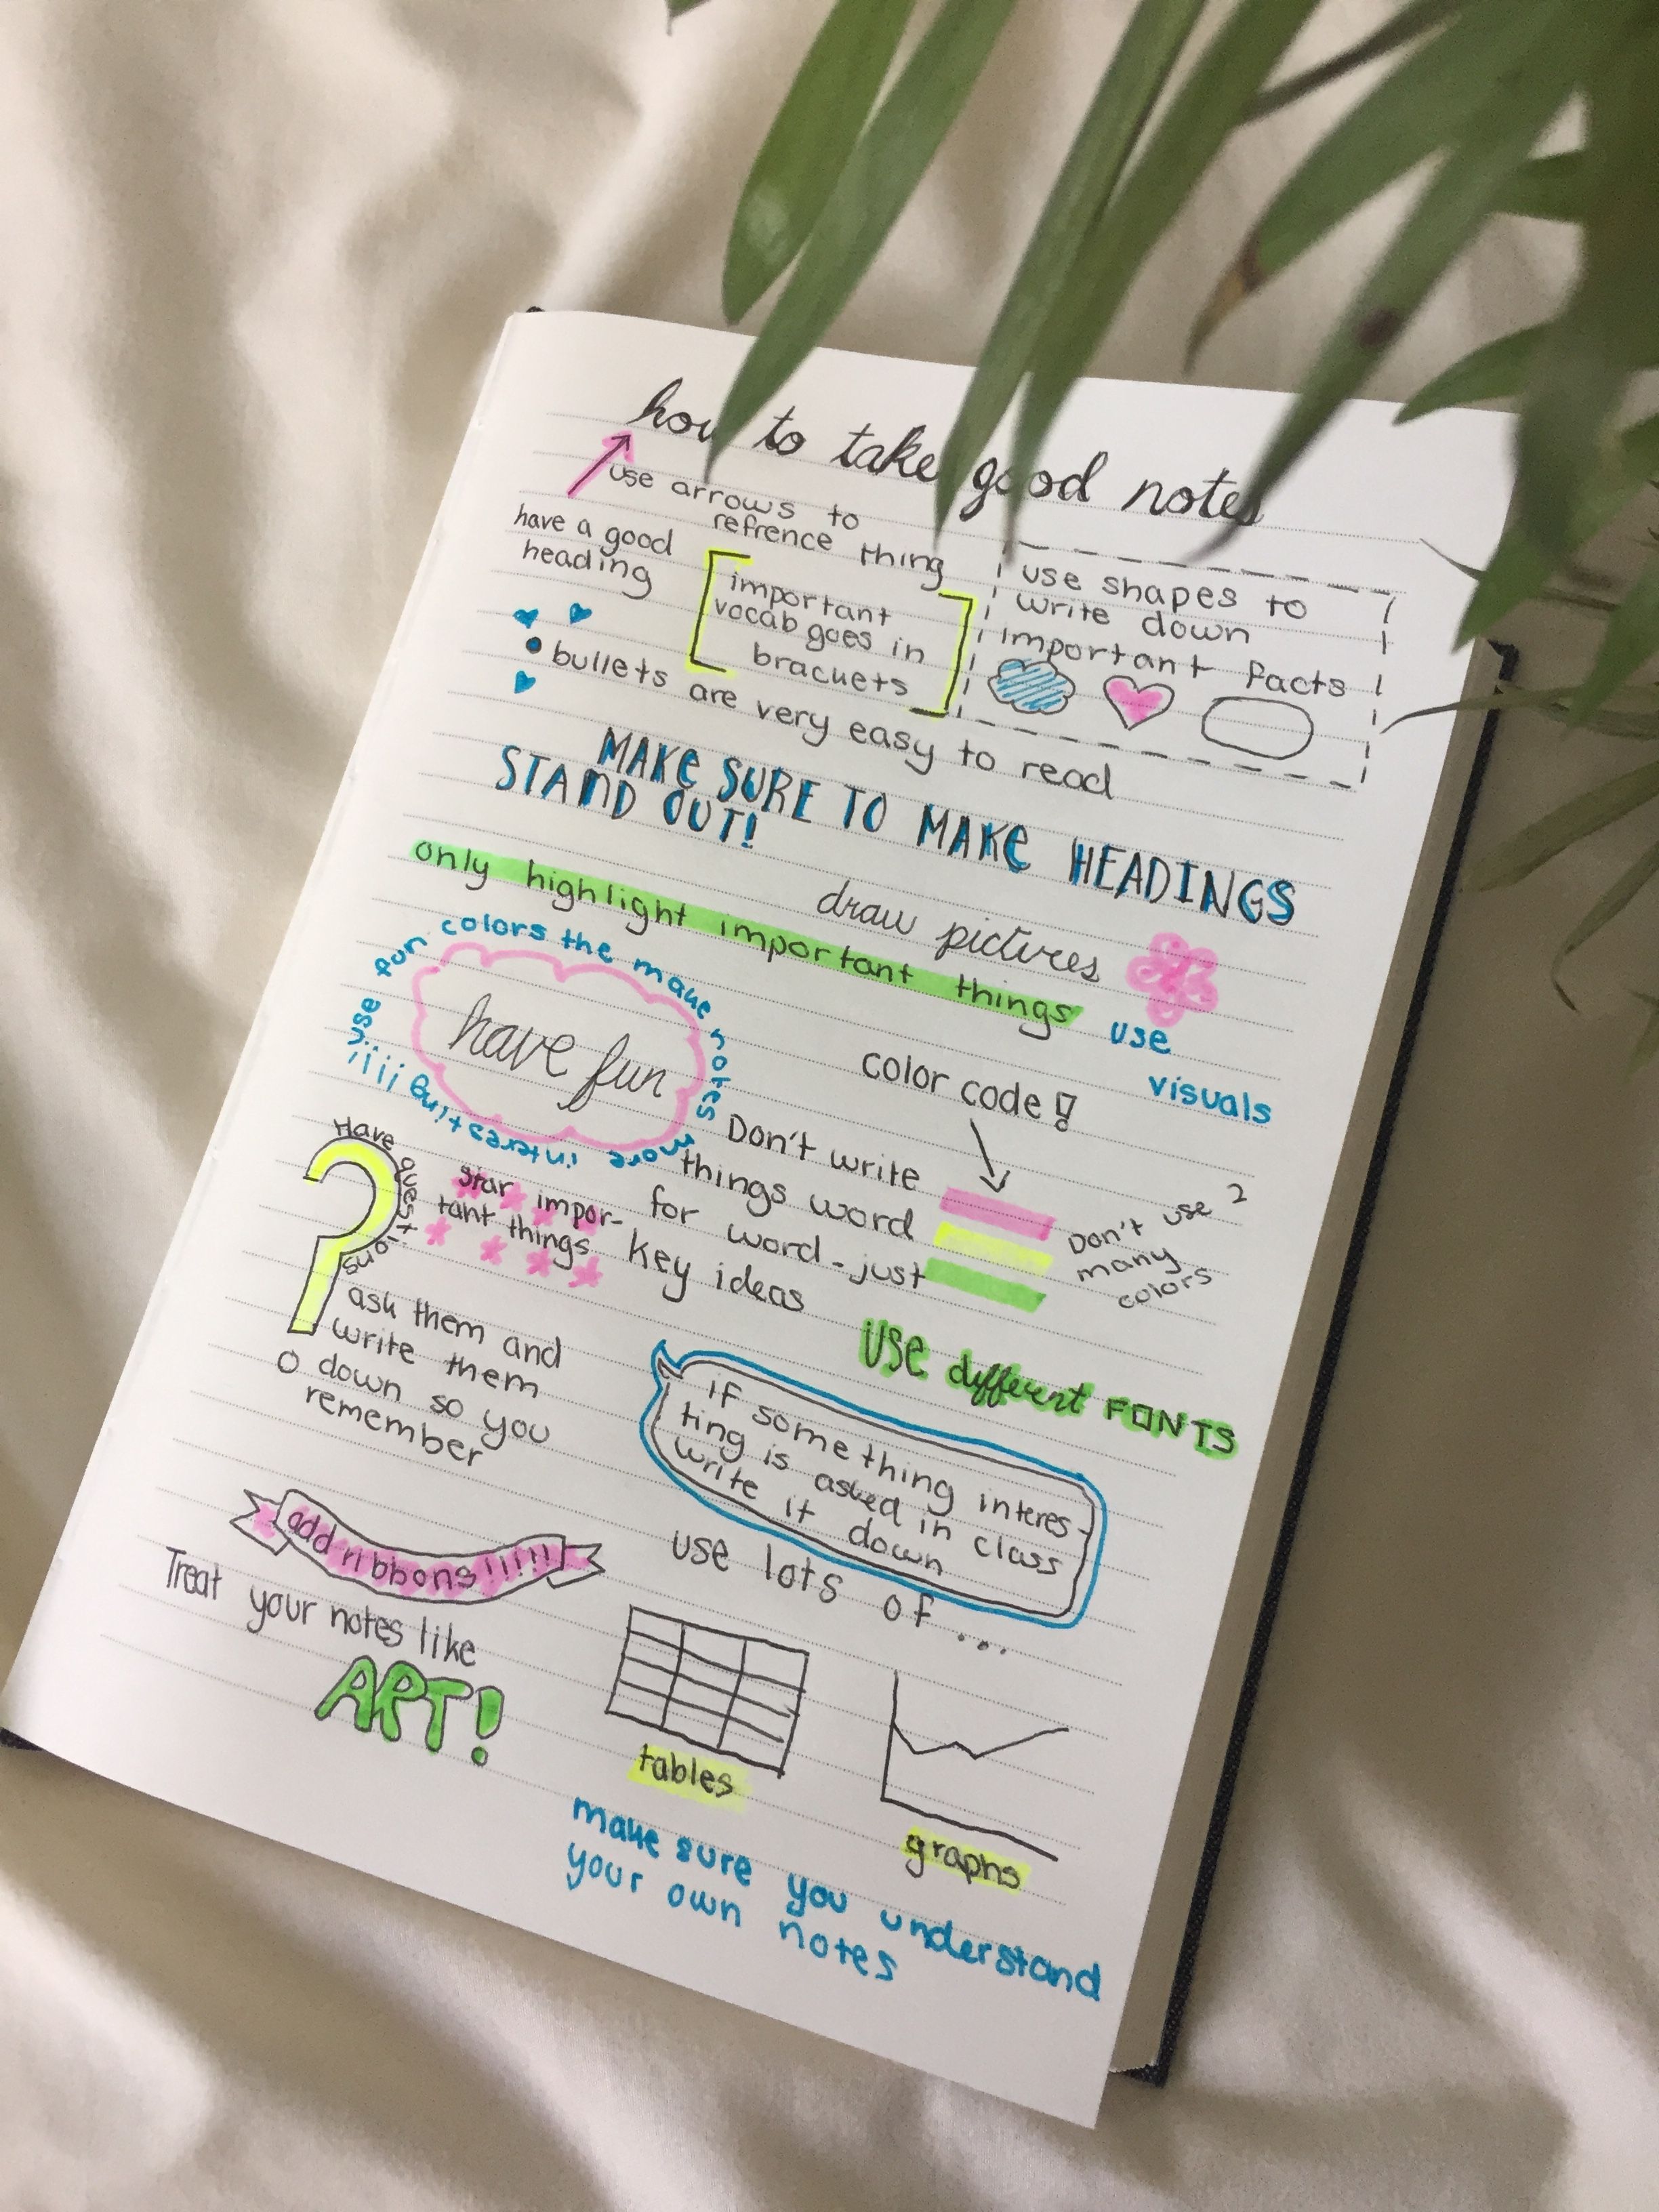 how to take good notes
use arrows to
refrence thing
have a good
heading
important
vocab goes in
brackets
use shapes to
write down
important facts
bullets are very easy to read
MAKE SURE TO MAKE HEADINGS
STAND OUT!
only highlight important things
draw pictures
use
visuals
use fun colors the make notes more interesting!!!!
have fun
color code!
Don't write
things word
for word - just
key ideas
Don't use 2
many
colors
Have questions
star impor-
tant things
ask them and
write them
down so you
remember
USE different FONTS
If something interes-
ting is asked in class
write it down
add ribbons!!!!!
Treat your notes like
ART!
use lots of ...
tables
graphs
make sure you understand
your own notes